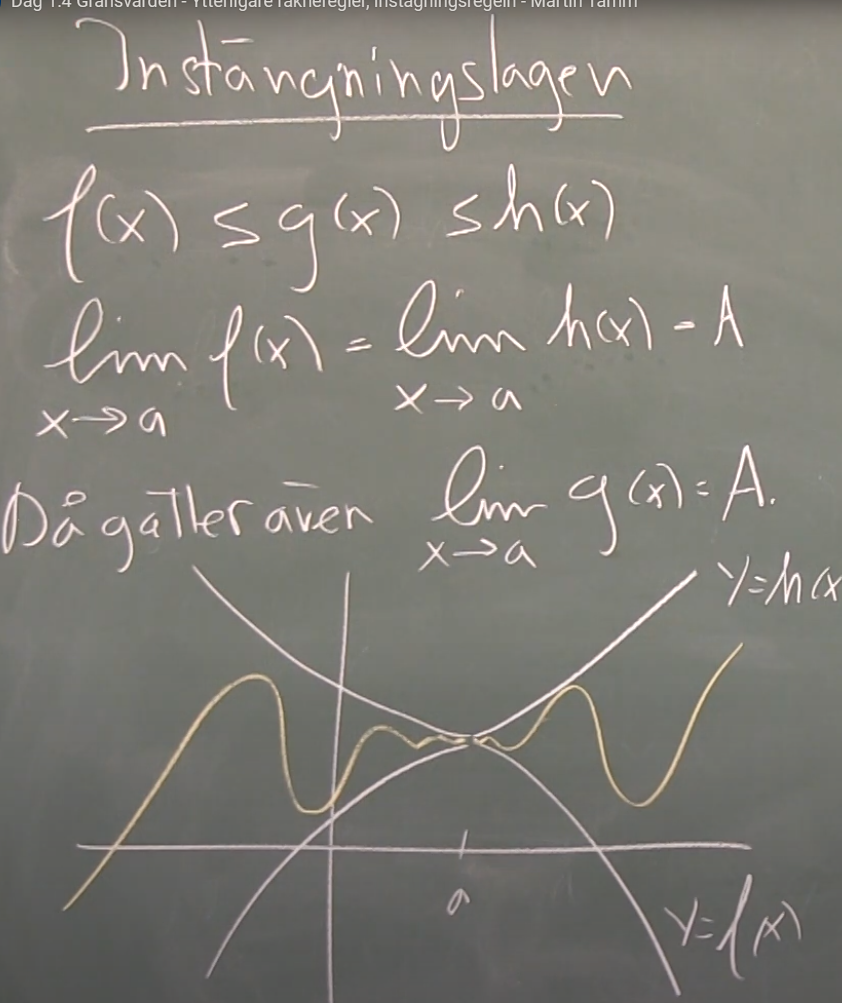 Dag 1.4 Gränsvärden - Ytterligare räkneregler, instägningsregeln - Martin Tamm
Instängningslagen
f(x) ≤ g(x) ≤ h(x)
lim f(x) = lim h(x) = A
x→a x→a
Då gäller även lim g(x) = A.
x→a
y=h(x
a
y=f(x)